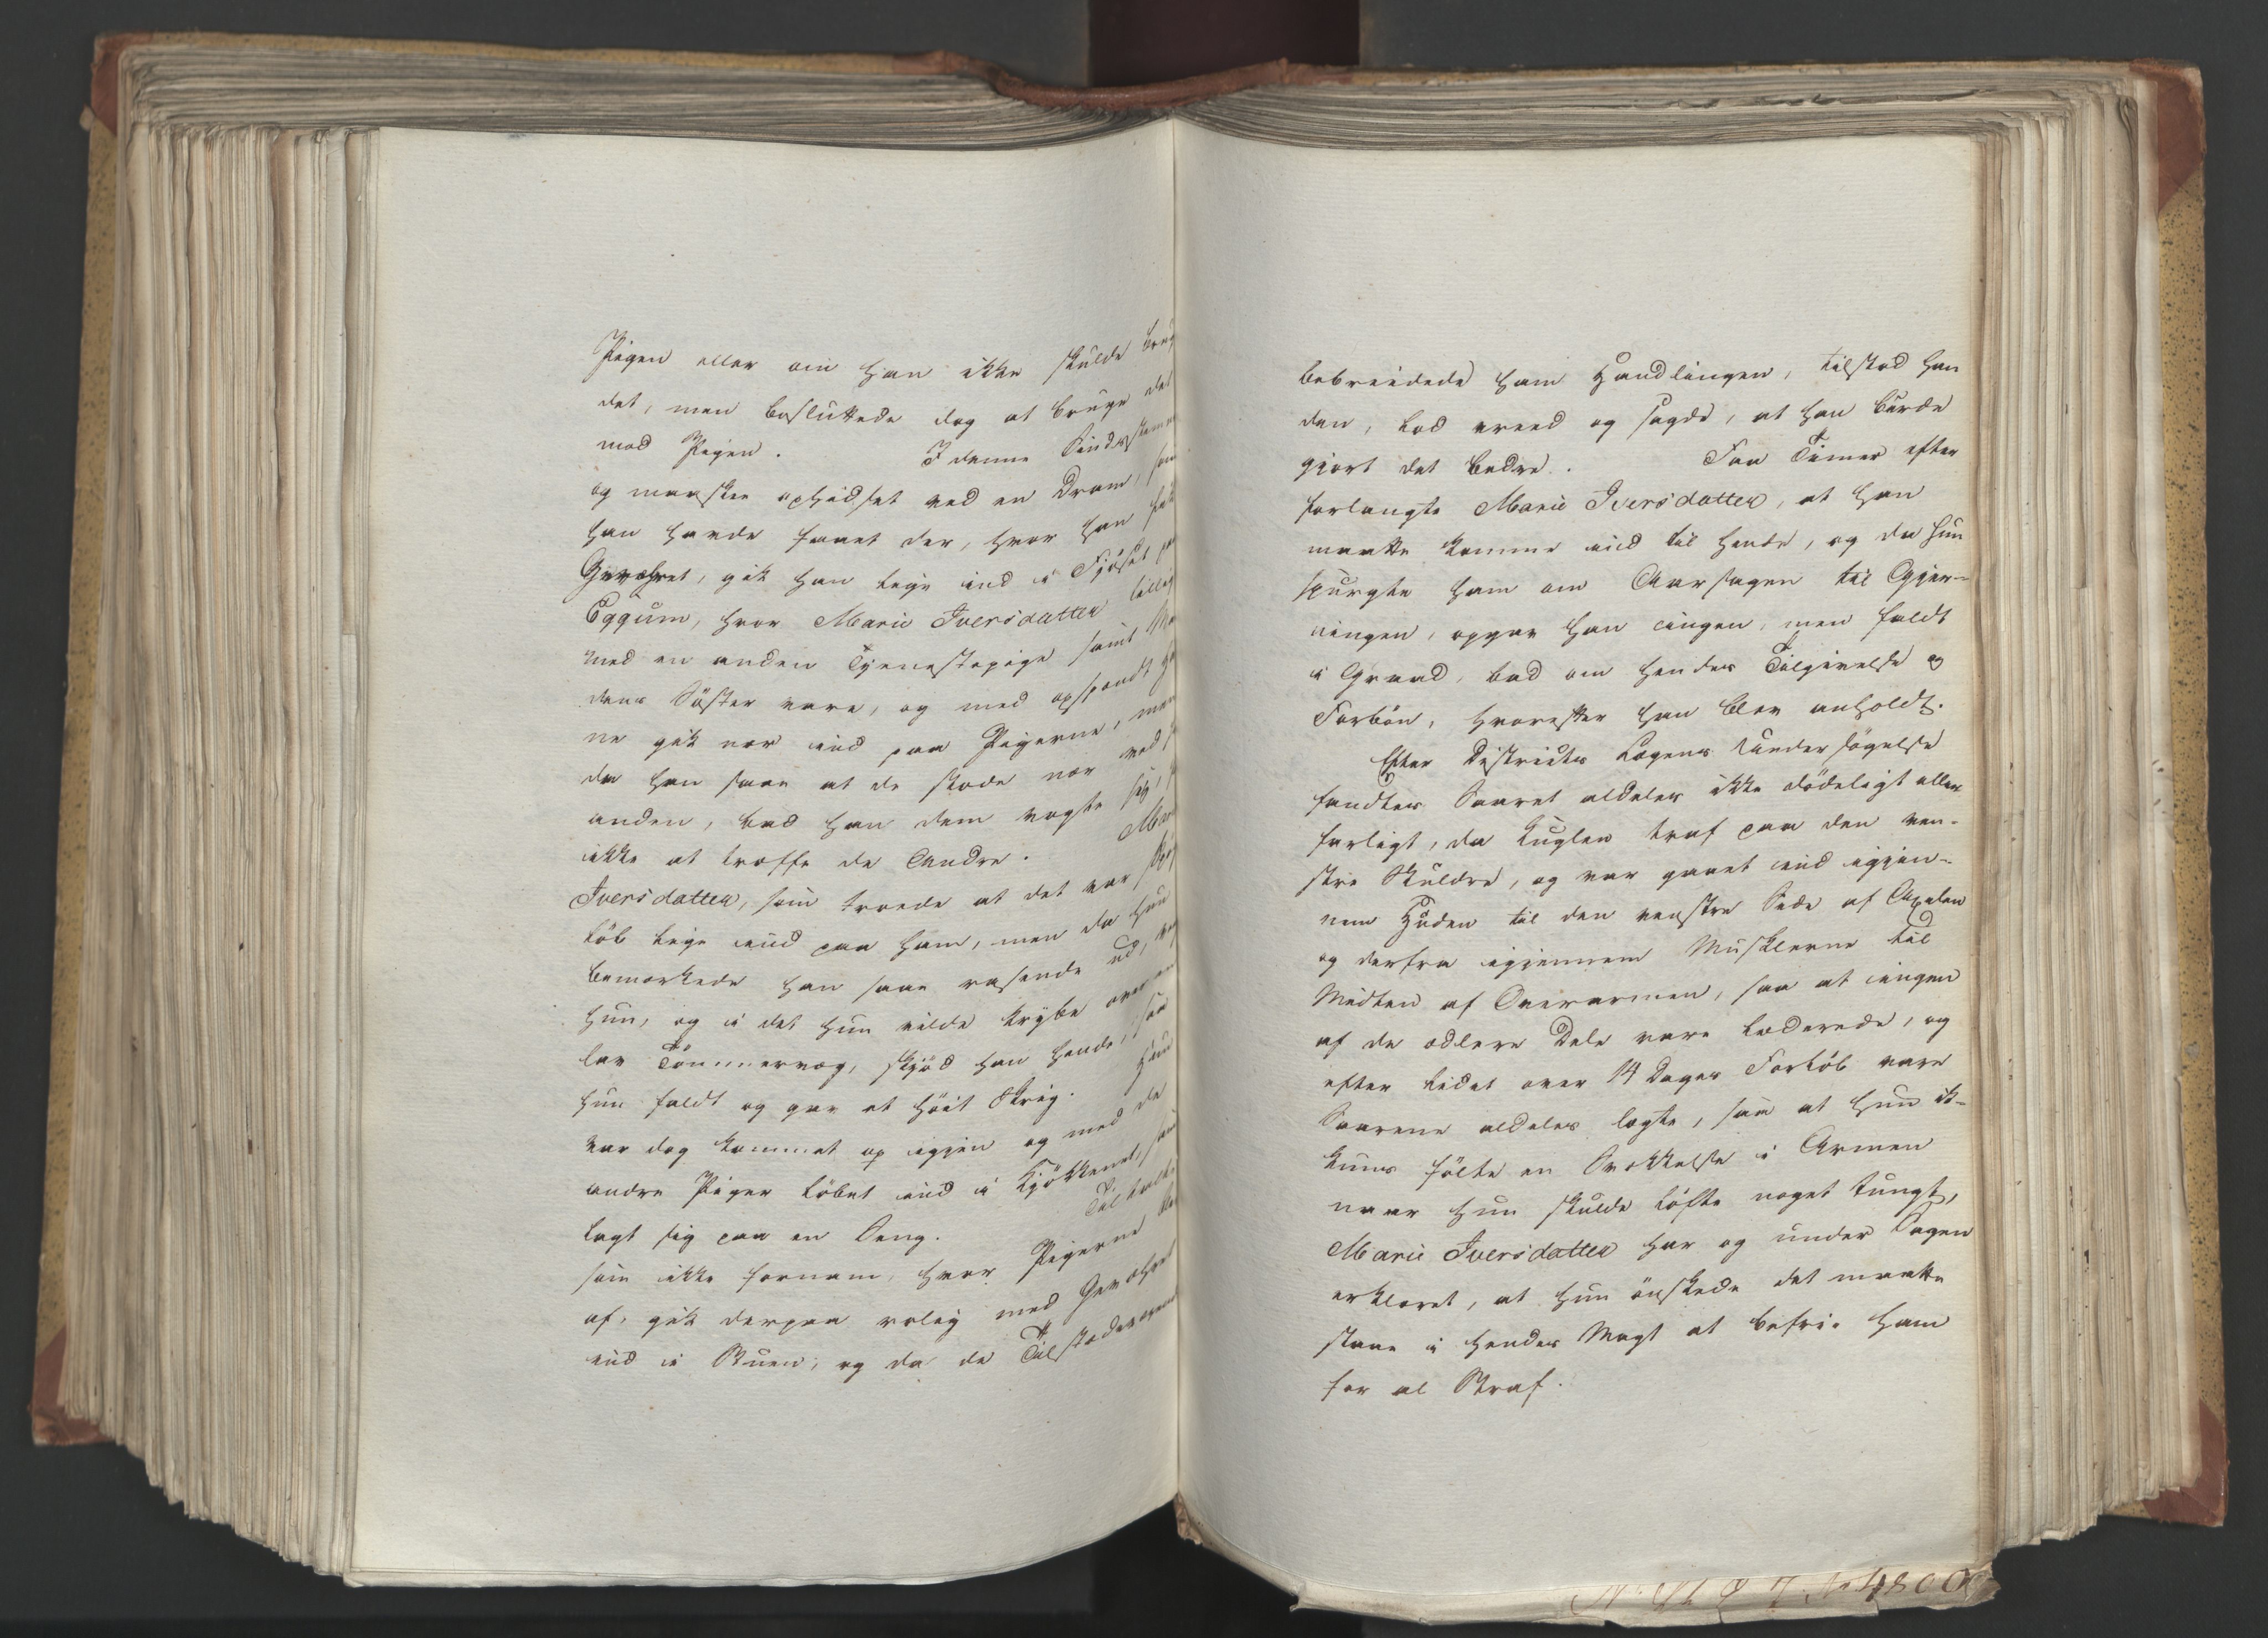 Pigen eller om han ikke skulde brug
det, men besluttede dog at bruge det
mod Pigen. I denne Sindsstemm
og maaskee ophidset ved en Dram, som
han havde faaet der, hvor han fik
Geværet, gik han lige ind i Fjöset paa
Eggum, hvor Marie Iversdatter tillig
med en anden Tjenestepige samt Ma
dens Söster vare, og med opspændt Ha
ne gik nær ind paa Pigerne, men
da han saae at de stode nær ved
anden, bad han dem vogte sig,
ikke at træffe de Andre. Mar
Iversdatter, som troede at det var
löb lige ind paa ham, men da hun
bemærkede han saae rasende ud,
hun, og i det hun vilde krybe over en
lav Tömmervæg, skjöd han hende, saa
hun faldt og gav et höit Skrig. Hun
var dog kommet op igjen og med de
andre Piger löbet ind i Kjökkenet, samt
lagt sig paa en Seng. Tiltalte
som ikke fornam, hvor Pigerne ble
af, gik derpaa rolig med Geværet
ind i Stuen, og da de Tilstedeværend
bebreidede ham Handlingen, tilstod han
den, lod vreed og sagde, at han burde
gjort det bedre. Faa Timer efter
forlangte Marie Iversdatter, at han
maatte komme ind til hende, og da hun
spurgte ham om Aarsagen til Gjer-
ningen, opgav han ingen, men faldt
i Graad, bad om hendes Tilgivelse og
Forbön, hvorefter han blev anholdt.
Efter Districts Lægens Undersögelse
fandtes Saaret aldeles ikke dödeligt eller
farligt, da Kuglen traf paa den ven-
stre Skuldre, og var gaaet ind igjen-
nem Huden til den venstre Side af Axelen
og derfra igjennem Musklerne til
Midten af Overarmen, saa at ingen
af de ædlere Dele vare læderede, og
efter lidet over 14 Dages Forlöb vare
Saarene aldeles lægte, saa at hun ik-
kuns fölte en Svækkelse i Armen
naar hun skulde löfte noget tungt,
Marie Iversdatter har og under Sagen
erklæret, at hun önskede det maatte
staae i hendes Magt at befrie ham
for al Straf.